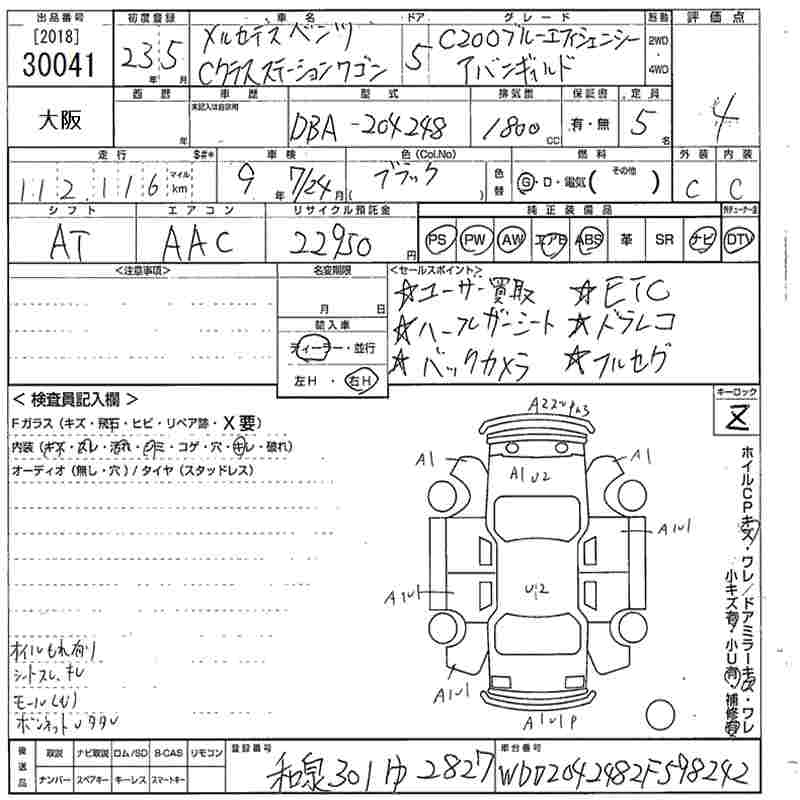 出品番号 初度登録 車名 ドア グレード 駆動 評価点
[2018]
30041
23年 5月
メルセデスベンツ
Cクラスステーションワゴン
5
C200ブルーエフィシェンシー
アバンギャルド
2WD
4WD
4
大阪
西暦 車歴 型式 排気量 保証書 定員
年
未記入は自家用
DBA-204248
1800cc
有・無
5名
走行 S#* 車検 色(Col.No) 燃料 外装 内装
112,116
マイル
km
9年 7/24月
ブラック
( )
色替
G・D・電気( その他 )
C C
シフト エアコン リサイクル預託金 純正装備品
AT AAC 22950円
PS PW AW エアB ABS 革 SR ナビ DTV
<注意事項>
名変期限
月 日
輸入車
ディーラー・並行
左H・右H
<セールスポイント>
☆ユーザー買取 ☆ETC
☆ハーフレザーシート ☆ドラレコ
☆バックカメラ ☆フルセグ
< 検査員記入欄 >
Fガラス(キズ・飛石・ヒビ・リペア跡・X要)
オーディオ(無し・穴)/タイヤ(スタッドレス)
オイルもれ有り
シートスレ、キレ
キーロック
A1 A1
A1U2
A1U1
U2
A1U1
A1U1
A1U1P
ホイルCPキズ・ワレ/ドアミラーキズ・ワレ
小キズ有・小U有・補修有
後送品
取説 ナビ取説 ロム/SD B-CAS リモコン
ナンバー スペアキー キーレス スマートキー
登録番号
和泉301ゆ2827
車台番号
WDD2042482F598242